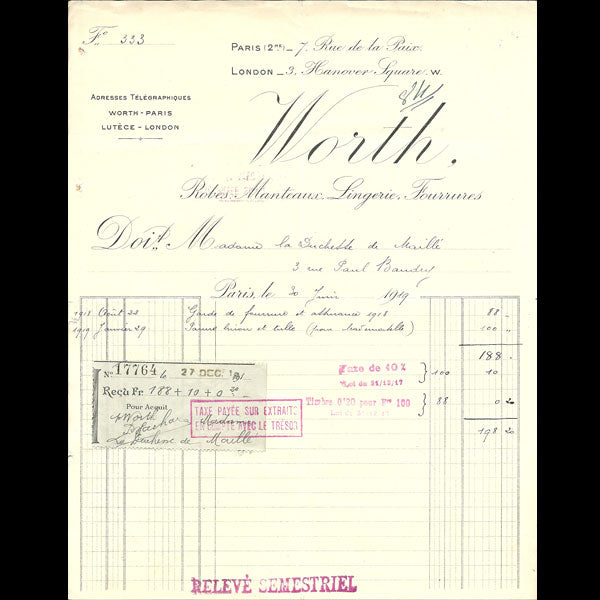 Fo 333
PARIS (2me) _ 7, Rue de la Paix.
LONDON _ 3, Hanover Square. W.
ADRESSES TÉLÉGRAPHIQUES
WORTH - PARIS
LUTÈCE - LONDON
Worth.
Robes, Manteaux, Lingerie, Fourrures
Doit Madame la Duchesse de Maillé
3 rue Paul Baudry
Paris, le 20 Juin 1919
1918 Août 22 Garde de fourrure et assurance 1918 88 "
1919 Janvier 29 et tulle (pour Mademoiselle) 100 "
188 "
Taxe de 10% } 100 10
Loi du 31/12/17
Timbre 0'20 pour Frs 100 } 88 0 20
198 20
No 17764 le 27 DEC. 191
Reçu Fr. 188 + 10 + 0 20
Pour Acquit
Worth
Madame
La Duchesse de Maillé
TAXE PAYÉE SUR EXTRAITS
EN COMPTE AVEC LE TRÉSOR
RELEVÉ SEMESTRIEL